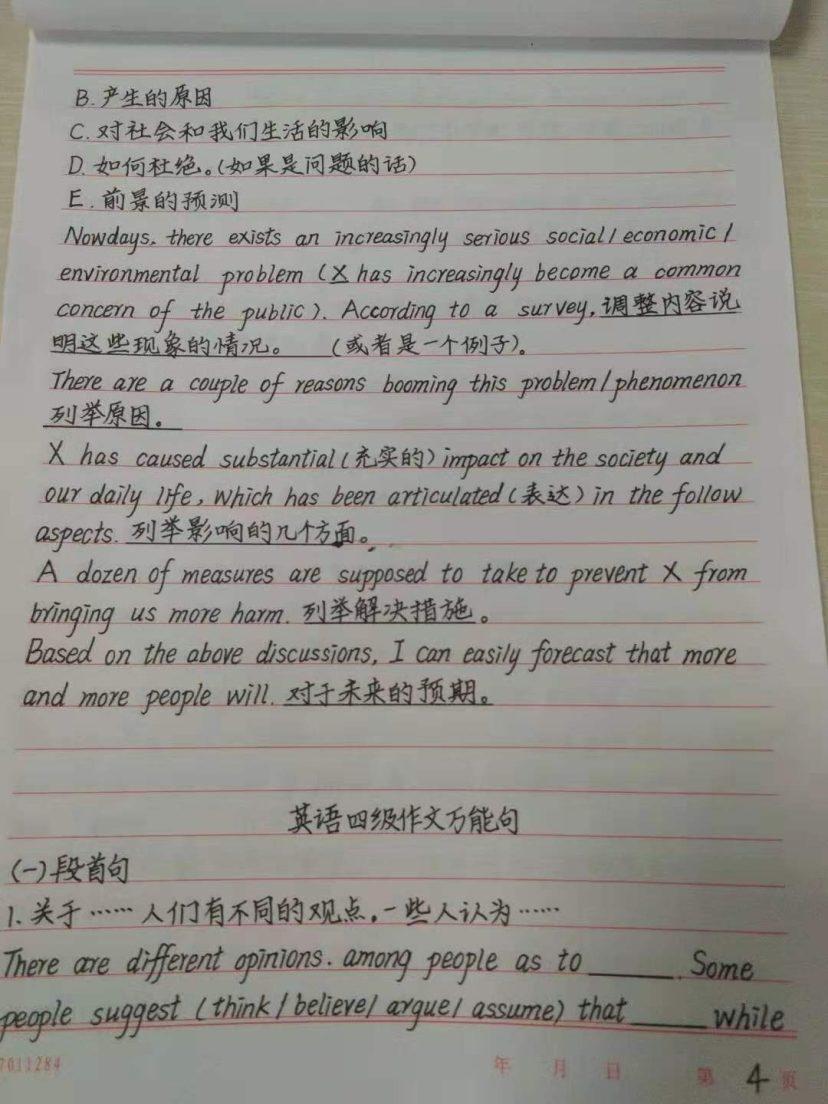 B.产生的原因
C.对社会和我们生活的影响
D.如何杜绝。(如果是问题的话)
E.前景的预测
Nowdays, there exists an increasingly serious social/economic/
environmental problem (X has increasingly become a common
concern of the public). According to a survey, 调整内容说
明这些现象的情况。 (或者是一个例子)。
There are a couple of reasons booming this problem/phenomenon
列举原因。
X has caused substantial(充实的)impact on the society and
our daily life, which has been articulated(表达)in the follow
aspects. 列举影响的几个方面。
A dozen of measures are supposed to take to prevent X from
bringing us more harm. 列举解决措施。
Based on the above discussions, I can easily forecast that more
and more people will. 对于未来的预期。
英语四级作文万能句
(一)段首句
1.关于……人们有不同的观点。一些人认为……
There are different opinions. among people as to ______. Some
people suggest (think/believe/argue/assume) that _____ while
7011284 年 月 日 第 4 页